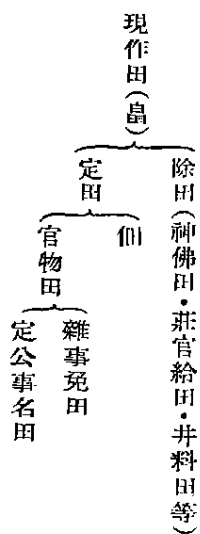 現作田(畠)
除田(神佛田・莊官給田・井料田等)
定田
佃
官物田
雜事免田
定公事名田